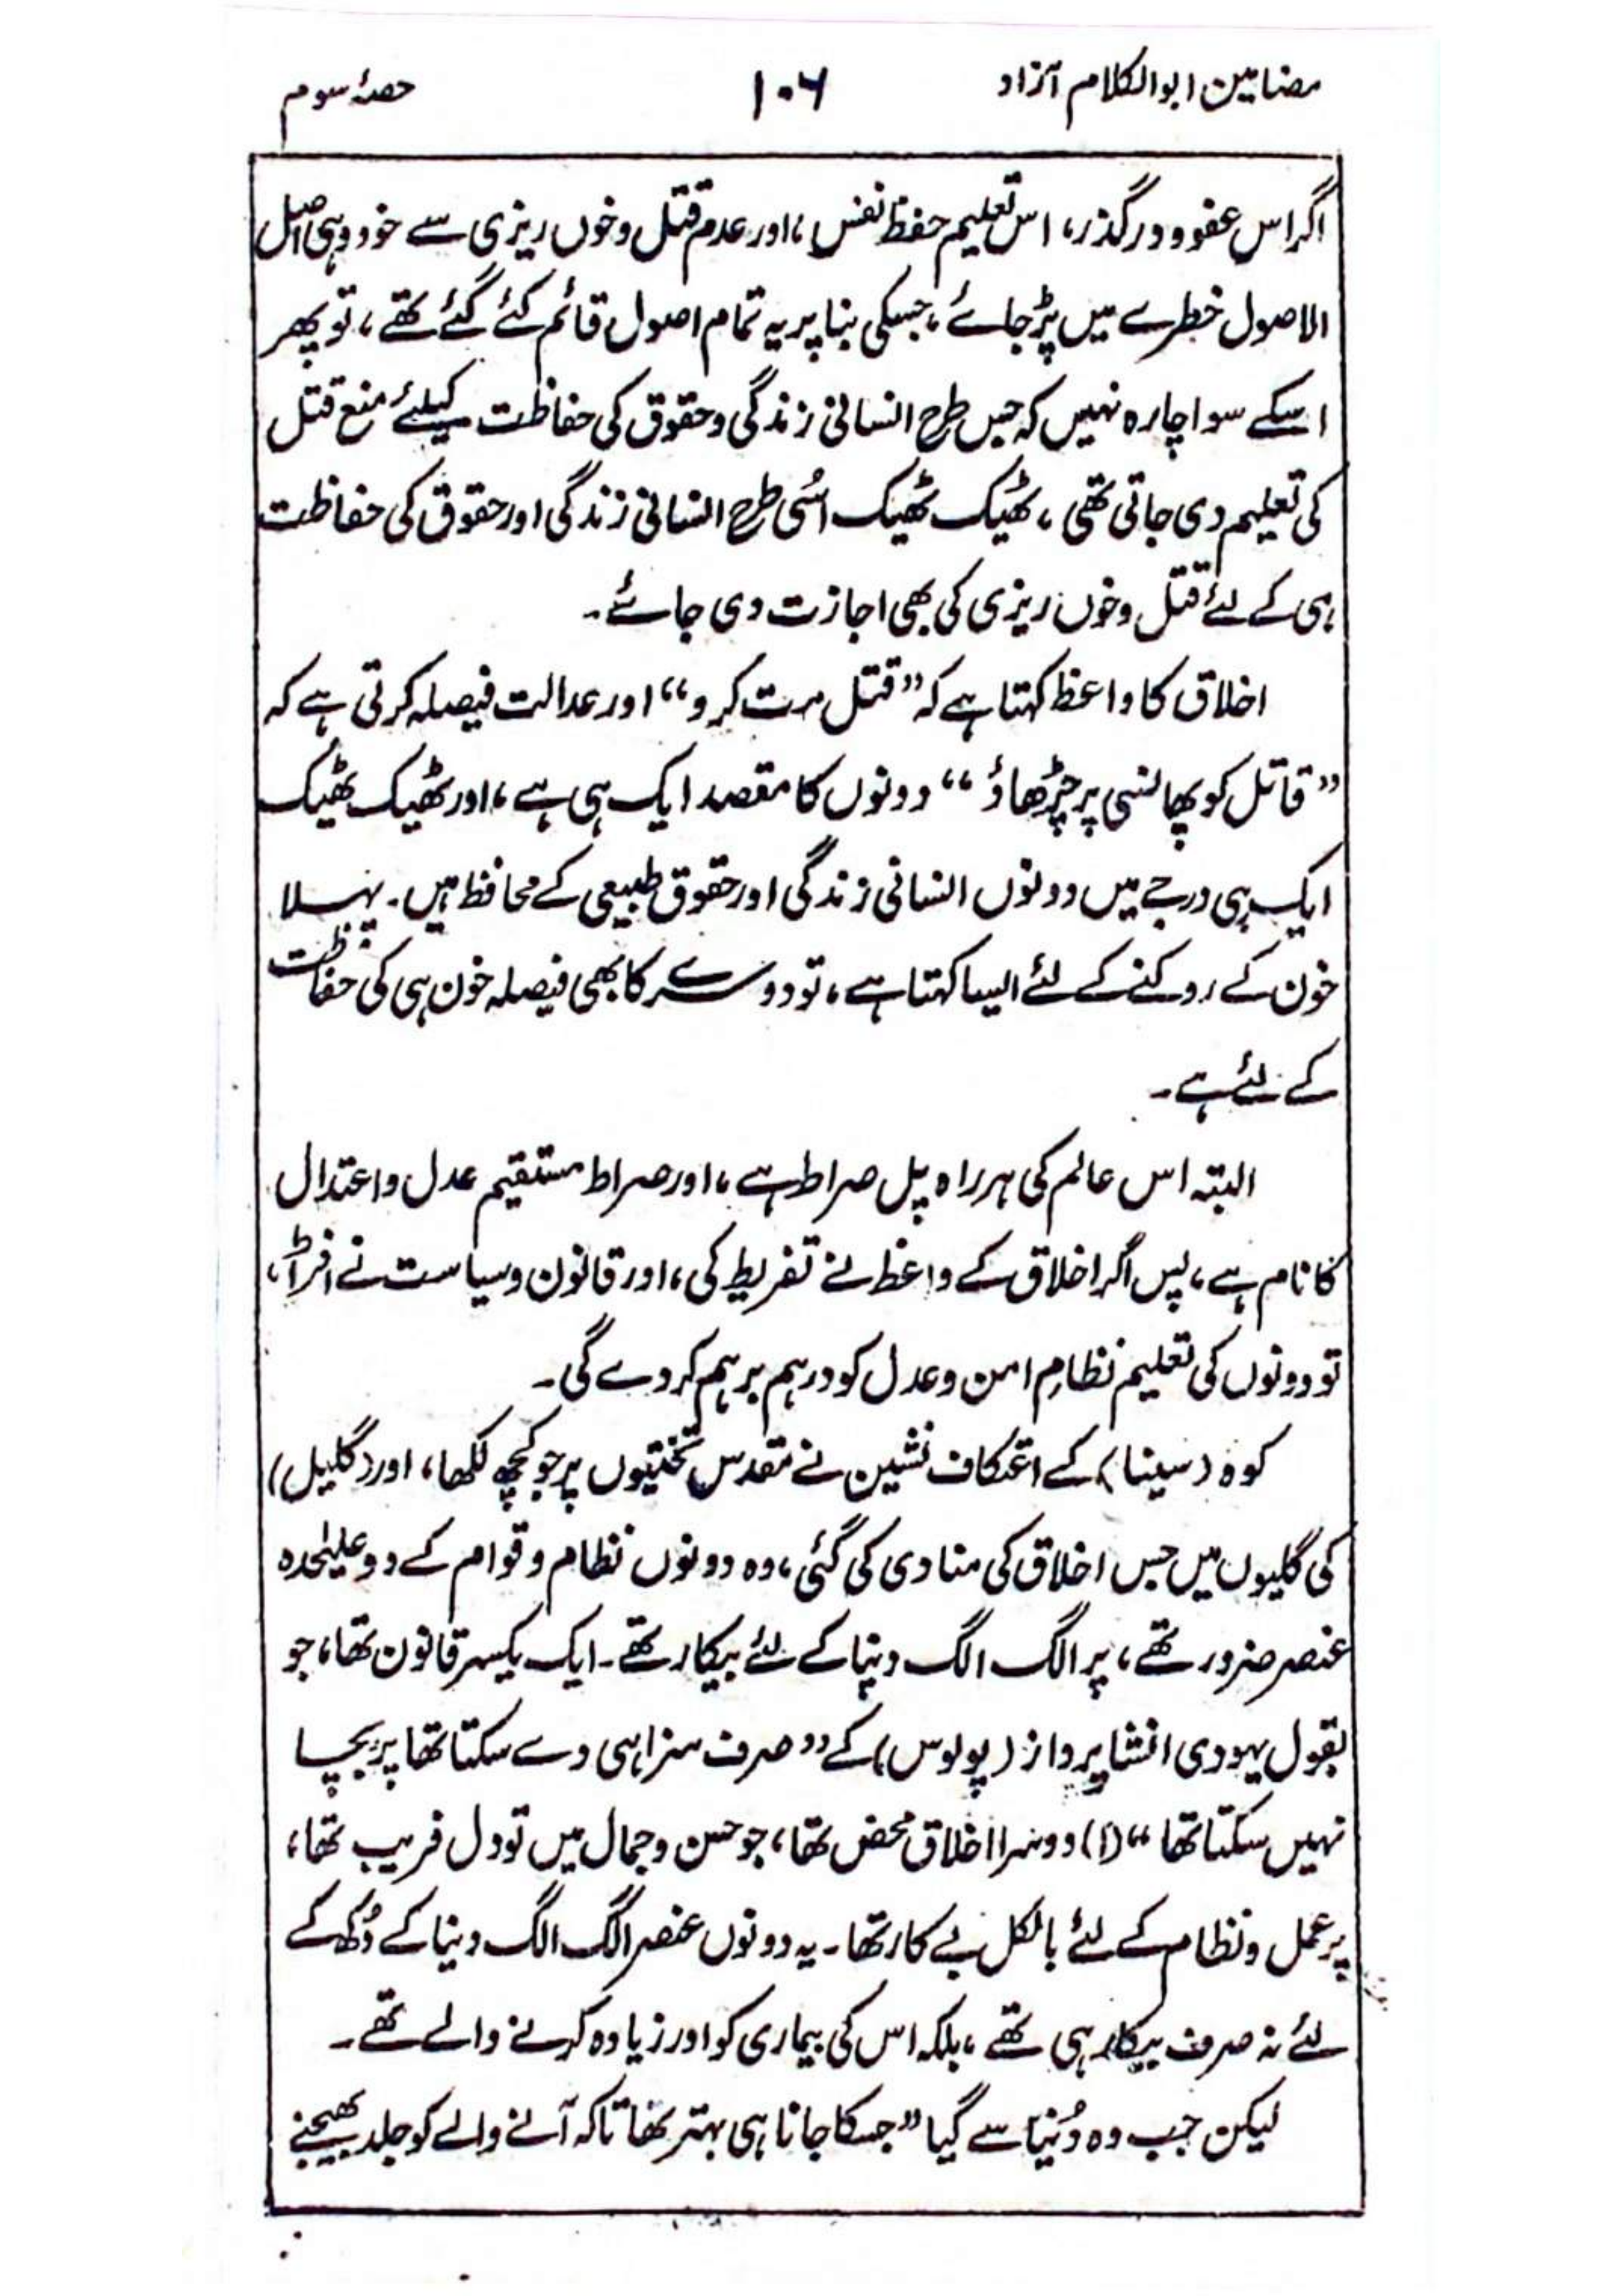 مضامین ابوالکلام آزاد ۱۰۶ حصۂ سوم
اگر اس عفو و درگذر، اس تعلیم حفظ نفس، اور عدم قتل و خوں ریزی سے خود وہی اصل
الاصول خطرے میں پڑ جائے، جسکی بنا پر یہ تمام اصول قائم کئے گئے تھے، تو پھر
اسکے سوا چارہ نہیں کہ جس طرح انسانی زندگی و حقوق کی حفاظت کیلئے منع قتل
کی تعلیم دی جاتی تھی، ٹھیک ٹھیک اُسی طرح انسانی زندگی اور حقوق کی حفاظت
ہی کے لئے قتل و خوں ریزی کی بھی اجازت دی جائے۔
اخلاق کا واعظ کہتا ہے کہ ”قتل مت کرو“ اور عدالت فیصلہ کرتی ہے کہ
”قاتل کو پھانسی پر چڑھاؤ“ دونوں کا مقصد ایک ہی ہے، اور ٹھیک ٹھیک
ایک ہی درجے میں دونوں انسانی زندگی اور حقوق طبیعی کے محافظ ہیں۔ پہلا
خون کے روکنے کے لئے ایسا کہتا ہے، تو دوسرے کا بھی فیصلہ خون ہی کی حفاظت
کے لئے ہے۔
البتہ اس عالم کی ہر راہ پل صراط ہے، اور صراط مستقیم عدل و اعتدال
کا نام ہے، پس اگر اخلاق کے واعظ نے تفریط کی، اور قانون و سیاست نے افراط،
تو دونوں کی تعلیم نظامِ امن و عدل کو درہم برہم کر دے گی۔
کوہ (سینا) کے اعتکاف نشین نے مقدس تختیوں پر جو کچھ لکھا، اور (گلیل)
کی گلیوں میں جس اخلاق کی منادی کی گئی، وہ دونوں نظام و قوام کے دو علیٰحدہ
عنصر ضرور تھے، پر الگ الگ دنیا کے لئے بیکار تھے۔ ایک یکسر قانون تھا، جو
بقول یہودی انشا پرداز (پولوس) کے ”صرف سزا ہی دے سکتا تھا پر بچا
نہیں سکتا تھا“ (۱) دوسرا اخلاق محض تھا، جو حسن و جمال میں تو دل فریب تھا،
پر عمل و نظام کے لئے بالکل بے کار تھا۔ یہ دونوں عنصر الگ الگ دنیا کے دُکھ کے
لئے نہ صرف بیکار ہی تھے، بلکہ اس کی بیماری کو اور زیادہ کرنے والے تھے۔
لیکن جب وہ دُنیا سے گیا ”جسکا جانا ہی بہتر تھا تاکہ آنے والے کو جلد بھیجنے